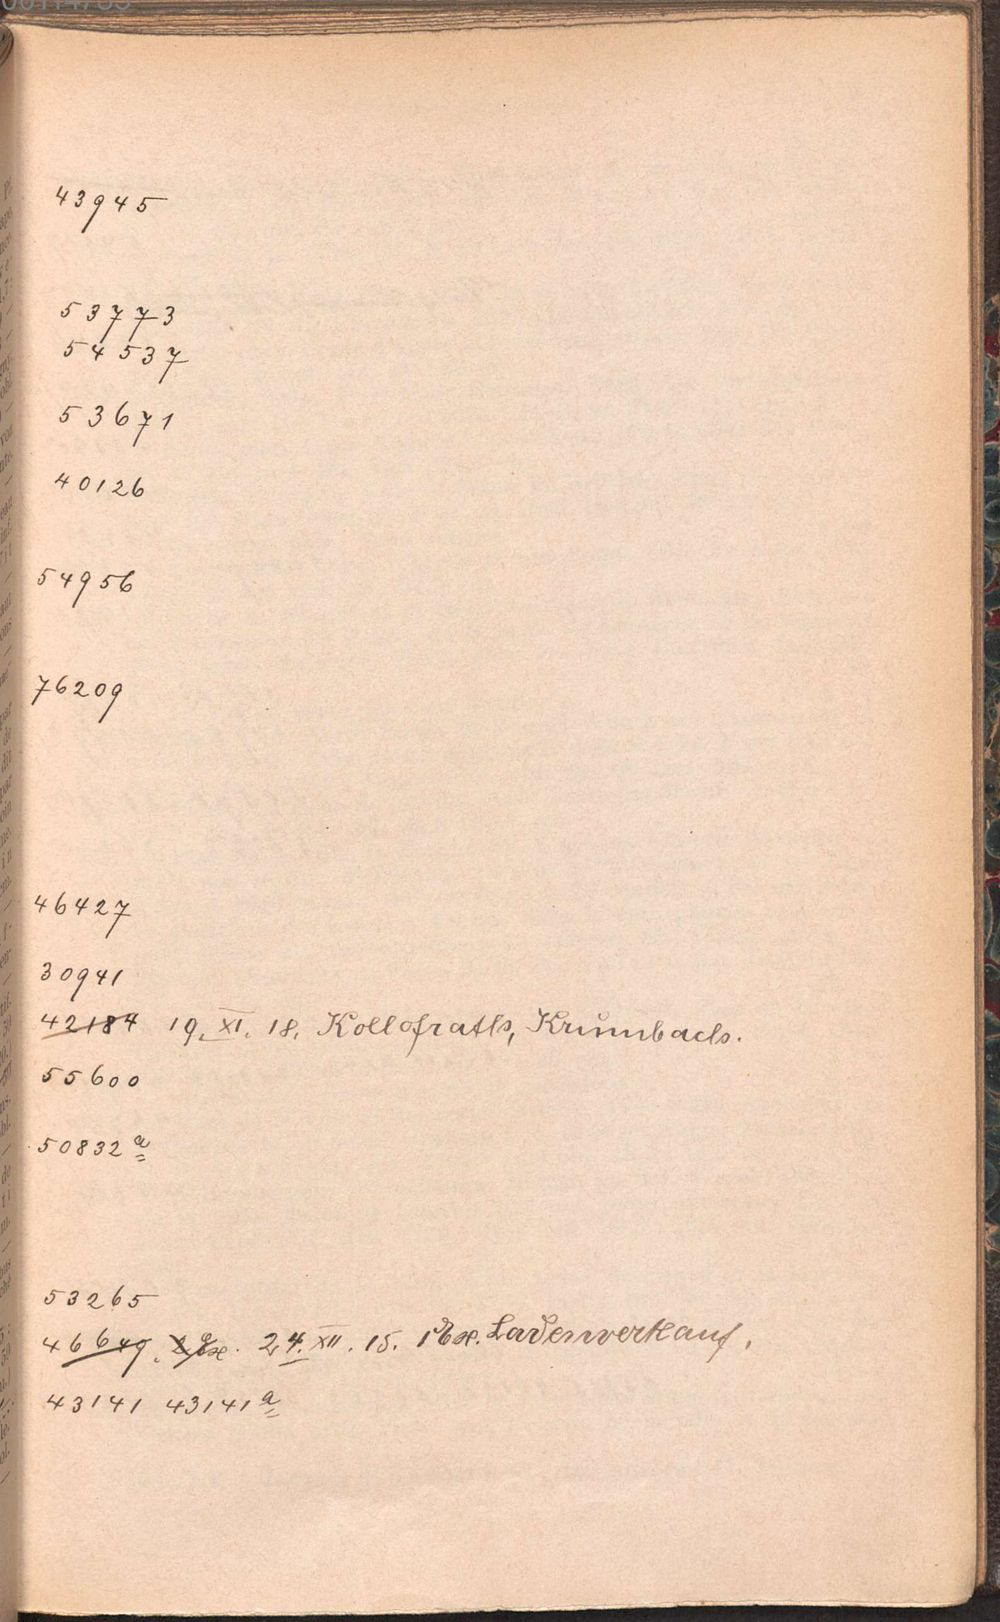 43945
53773
54537
53671
40126
54956
76209
46427
30941
42184 19. XI. 18. Kollofrath, Krumbach.
55600
50832 a
53265
46649. 2 Ex. 24. XII. 15. 1 Ex. Ladenverkauf.
43141 43141 a